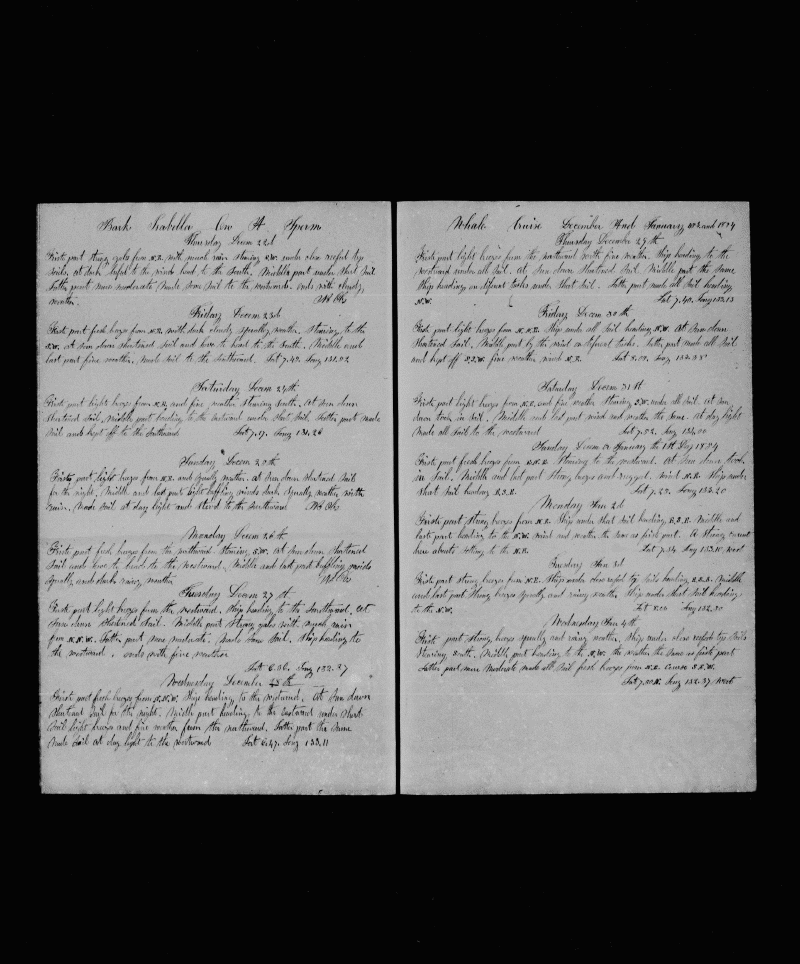 Bark Isabella On A Sperm
Thursday Decem 22d
Firste part strong gales from N.E. with much rain stearing S.W. under close reefed top
sails. at dark lufed to the wind head to the South. Middle part under short Sail
Latter part more moderate made some Sail to the westward. ends with cloudy
weather. No Obs
Friday Decem 23d
Firste part fresh brezes from N.E. with dark cloudy Squally weather. Stearing to the
S.W. at Sun down shortened Sail and hove to head to the South. Middle and
last part fine weather. made Sail to the Southward. Lat 7.49. Long 131.02
Saturday Decem 24th
Firste part light brezes from N.E. and fine weather stearing South. At Sun down
Shortened Sail. Middle part heading to the eastward under Short Sail. Latter part made
Sail and kept off to the Southward Lat 7.17. Long 131.26
Sunday Decem 25th
Firste part light brezes from N.E. and Squally weather. at Sun down Shortened Sail
for the night. Middle and last part light baffling winds dark Squally weather with
rain. Made Sail at day light and Steerd to the Southward No Obs
Monday Decem 26th
Firste part fresh brezes from the northward Stearing S.W. At Sun down Shortened
Sail and hove to head to the Westward. Middle and last part baffling winds
Squally and dark rainy weather No Obs
Tuesday Decem 27th
Firste part light brezes from the westward. Ship heading to the Southward. At
Sun down Shortened Sail. Middle part Strong gales with much rain
from N.N.W. Latter part more moderate. made Some Sail. Ship heading to
the westward. ends with fine weather
Lat 6.36. Long 132.27
Wednesday December 28th
Firste part fresh brezes from N.N.W. Ship heading to the westward. At Sun down
Shortened Sail for the night. Middle part heading to the eastward under Short
Sail light brezes and fine weather from the northward. Latter part the Same
Made Sail at day light to the westward Lat 6.47. Long 133.11
Whale Cruise December And January 1853 and 1854
Thursday December 29th
Firste part light brezes from the northward with fine weather. Ship heading to the
westward under all Sail. at Sun down Shortened Sail. Middle part the Same
Ship heading on diferent tacks under Short Sail. Latter part made all Sail heading
N.W. Lat 7.40. Long 133.13
Friday Decem 30th
Firste part light brezes from N.N.E. Ship under all Sail heading N.W. At Sun down
Shortened Sail. Middle part by the wind on diferent tacks. Latter part made all Sail
and kept off S.S.W. fine weather wind N.E. Lat 8.09. Long 132.38
Saturday Decem 31st
Firste part light brezes from N.E. and fine weather. Stearing S.W. under all Sail. at Sun
down took in Sail. Middle and last part wind and weather the Same. At day light
Made all Sail to the westward Lat 7.52. Long 133.00
Sunday Decem or January the 1st Day 1854
Firste part fresh brezes from N.N.E. Stearing to the westward. At Sun down took
in Sail. Middle and last part Strong brezes and rugged. Wind N.E. Ship under
Short Sail heading E.S.E. Lat 7.29. Long 133.20
Monday Jan 2d
Firste part Strong brezes from N.E. Ship under Short Sail heading E.S.E. Middle and
last part heading to the N.W. wind and weather the Same as firste part. A Strong current
here abouts Setting to the N.E. Lat 7.54 Long 133.15 West
Tuesday Jan 3d
Firste part Strong brezes from N.E. Ship under close reefed top Sails heading E.S.E. Middle
and last part Strong brezes Squally and rainy weather. Ship under Short Sail heading
to the N.W. Lat 8.00 Long 132.30
Wednesday Jan 4th
Firste part Strong brezes Squally and rainy weather. Ship under close reefed top Sails
Stearing South. Middle part heading to the N.W. the weather the Same as firste part
Latter part more Moderate made all Sail fresh brezes from N.E. Course S.S.W.
Lat 7.20 N. Long 132.37 West